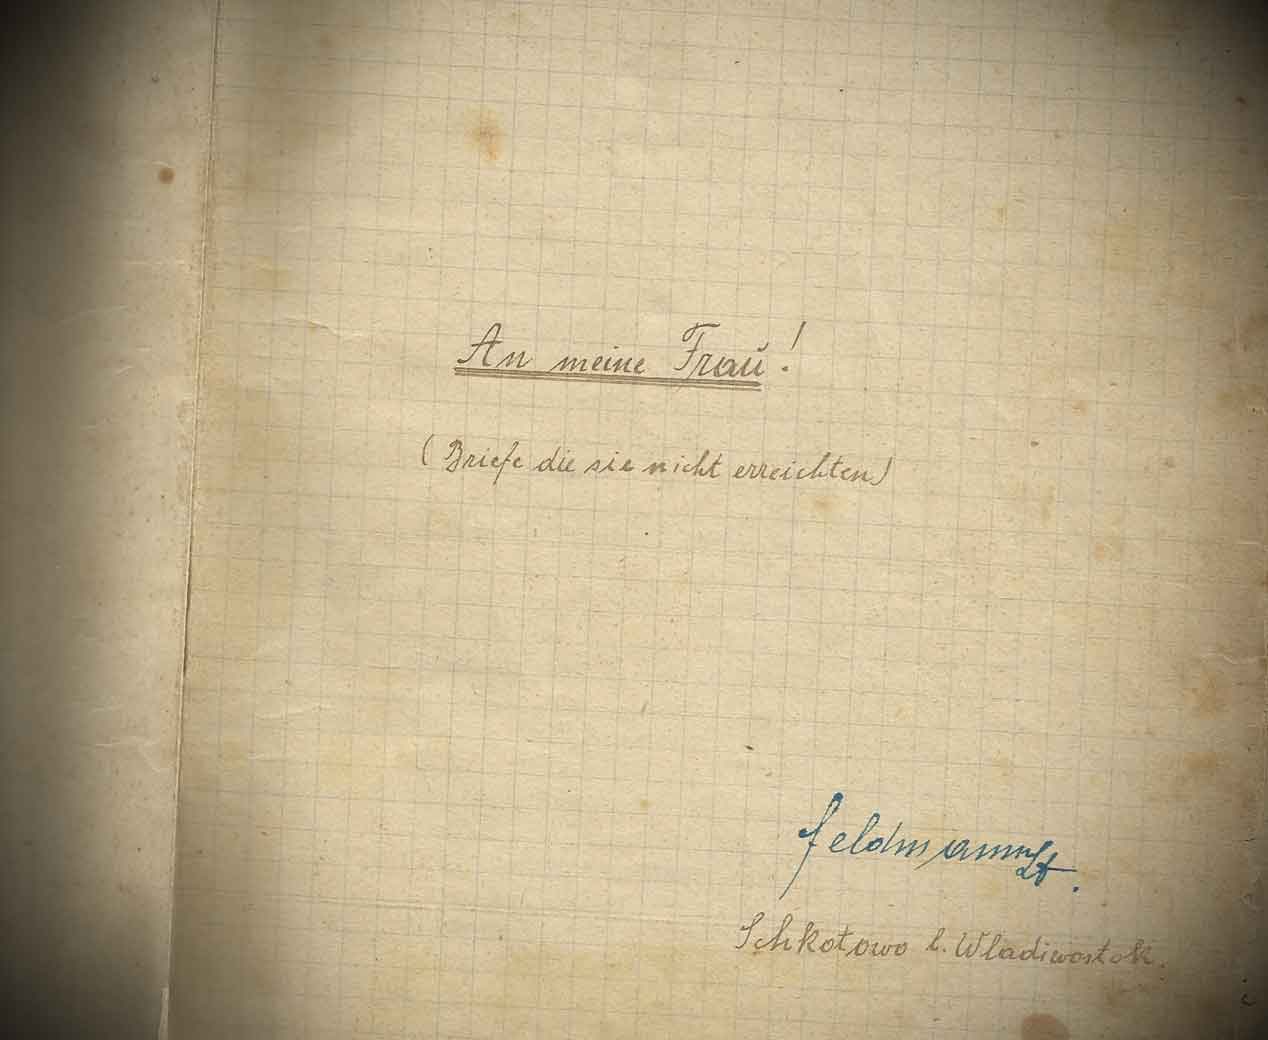 An meine Fraŭ!
(Briefe die sie nicht erreichten)
Feldmann Lt.
Schkotowo b. Wladiwostok.